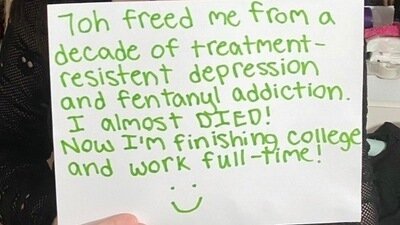 7oh freed me from a
decade of treatment-
resistent depression
and fentanyl addiction.
I almost DIED!
Now I'm finishing college
and work full-time!